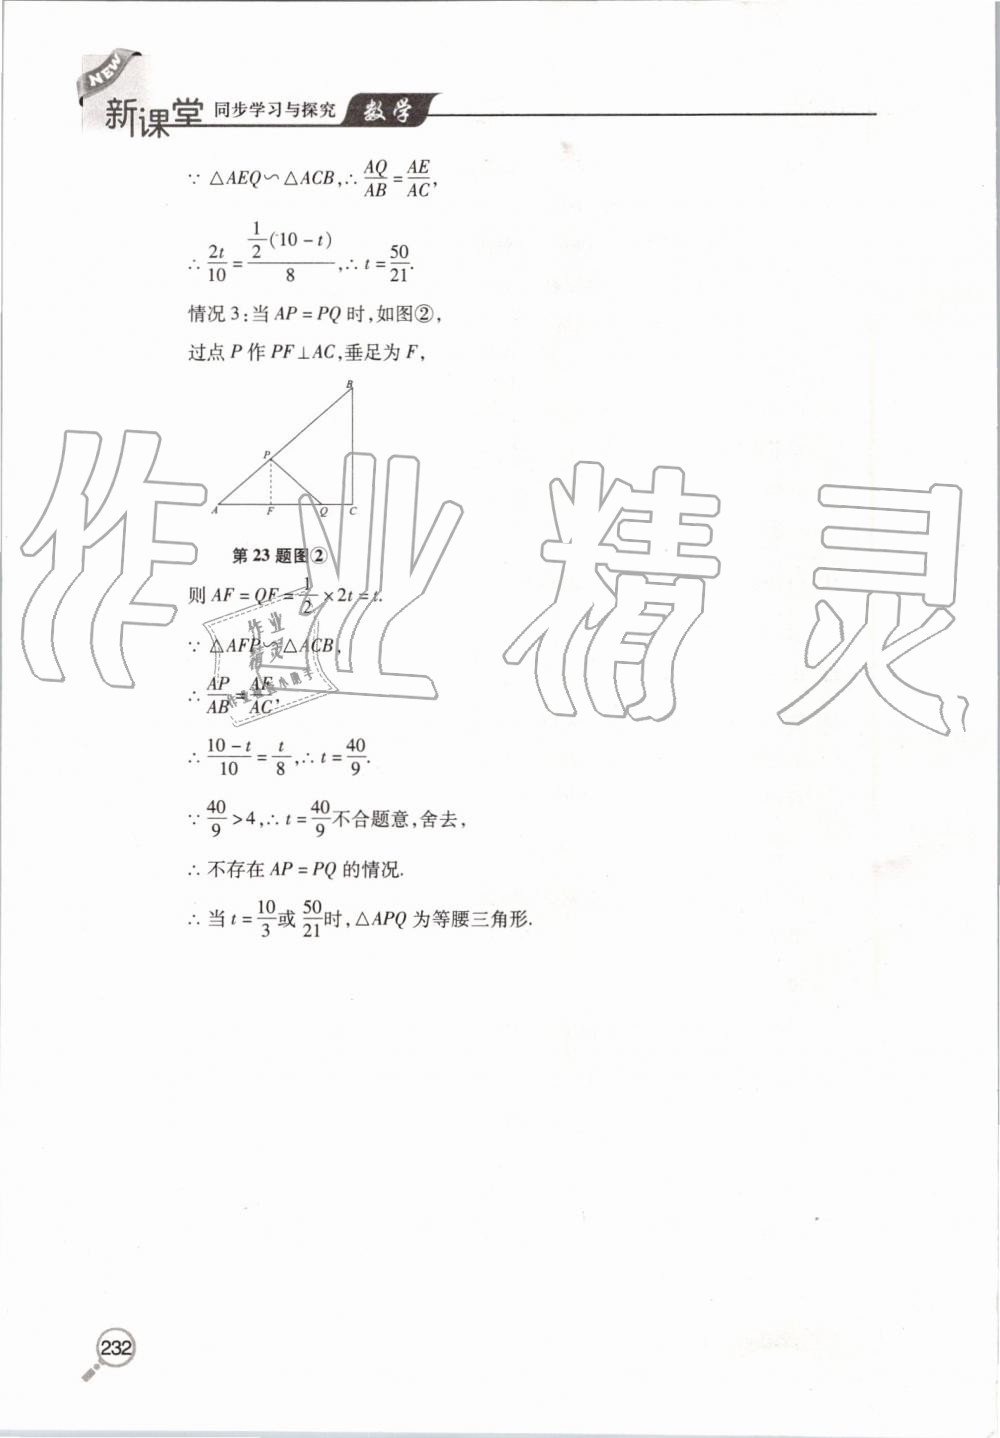 NEW
新课堂 同步学习与探究 数学
∵ △AEQ∽△ACB,∴ AQ/AB = AE/AC,
∴ 2t/10 = 1/2(10-t)/8,∴ t = 50/21.
情况 3:当 AP = PQ 时,如图②,
过点 P 作 PF⊥AC,垂足为 F,
B
P
A F Q C
第 23 题图②
则 AF = QF = 1/2 × 2t = t.
∵ △AFP∽△ACB,
∴ AP/AB = AF/AC,
∴ 10-t/10 = t/8,∴ t = 40/9.
∵ 40/9 > 4,∴ t = 40/9 不合题意,舍去,
∴ 不存在 AP = PQ 的情况.
∴ 当 t = 10/3 或 50/21 时,△APQ 为等腰三角形.
作业精灵
作业
精灵
232